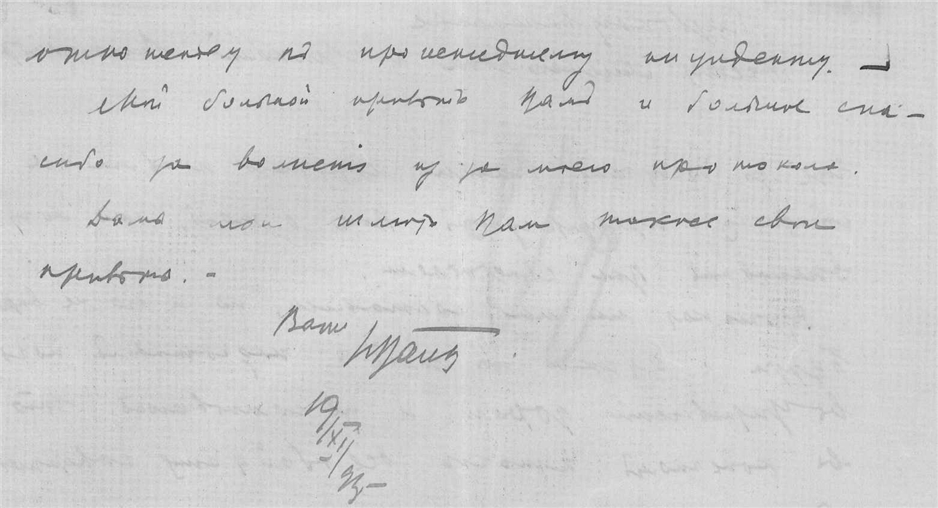 отношенiю къ происшедшему инциденту.
Мой большой привѣтъ Вамъ и большое спа-
сибо за волненiя из за моего протокола.
Дамы мои шлютъ Вам также свои
привѣты. -
Вашъ
19/XII